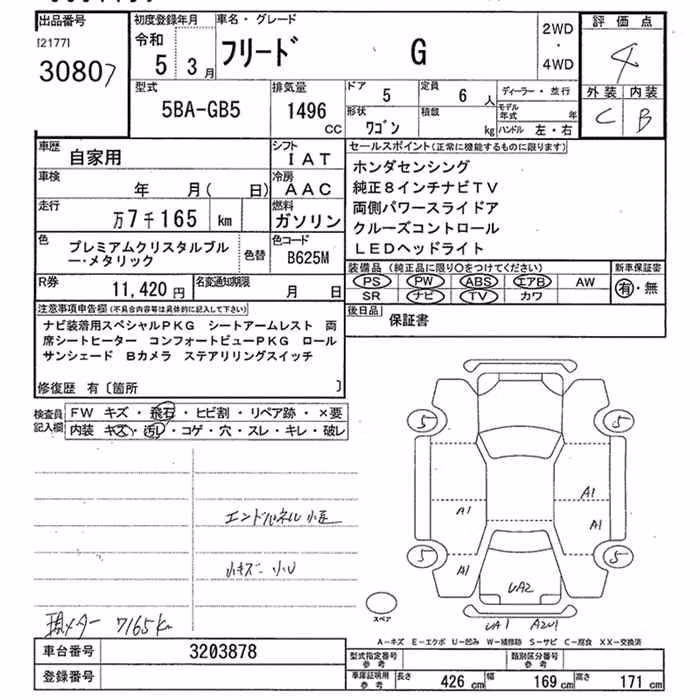 出品番号
[2177]
30807
初度登録年月
令和
5 3月
車名・グレード
フリード G
2WD
・
4WD
評価点
4
外装 内装
C B
型式
5BA-GB5
排気量
1496
CC
ドア
5
定員
6 人
ディーラー・並行
形状
ワゴン
積載
kg
モデル年式 年
ハンドル 左・右
車歴
自家用
シフト
IAT
車検
年 月( 日)
冷房
AAC
走行
万7千165 km
燃料
ガソリン
色
プレミアムクリスタルブル
ー・メタリック
色替
色コード
B625M
R券
11,420 円
名変通知期限
月 日
セールスポイント(正常に機能するものに限ります)
ホンダセンシング
純正8インチナビTV
両側パワースライドア
クルーズコントロール
LEDヘッドライト
装備品(純正品に限り○をつけてください)
新車保証書
PS PW ABS エアB AW
有・無
SR ナビ TV カワ
後日品
保証書
注意事項申告欄(不具合内容等は具体的に記入して下さい)
ナビ装着用スペシャルPKG シートアームレスト 両
席シートヒーター コンフォートビューPKG ロール
サンシェード Bカメラ ステアリリングスイッチ
修復歴 有〔箇所 〕
検査員
記入欄
FW キズ・飛石・ヒビ割・リペア跡・×要
内装 キズ・汚レ・コゲ・穴・スレ・キレ・破レ
エンドパネル 小歪
小キズ 小U
現メーター 7165km
5 5
A1
A1 A1
A1
5 5
UA2
UA1 AU1
スペア
A-キズ E-エクボ U-凹み W-補修跡 S-サビ C-腐食 XX-交換済
車台番号
3203878
登録番号
型式指定番号
参考
類別区分番号
参考
車庫証明用
参考
長さ 426 cm 幅 169 cm 高さ 171 cm